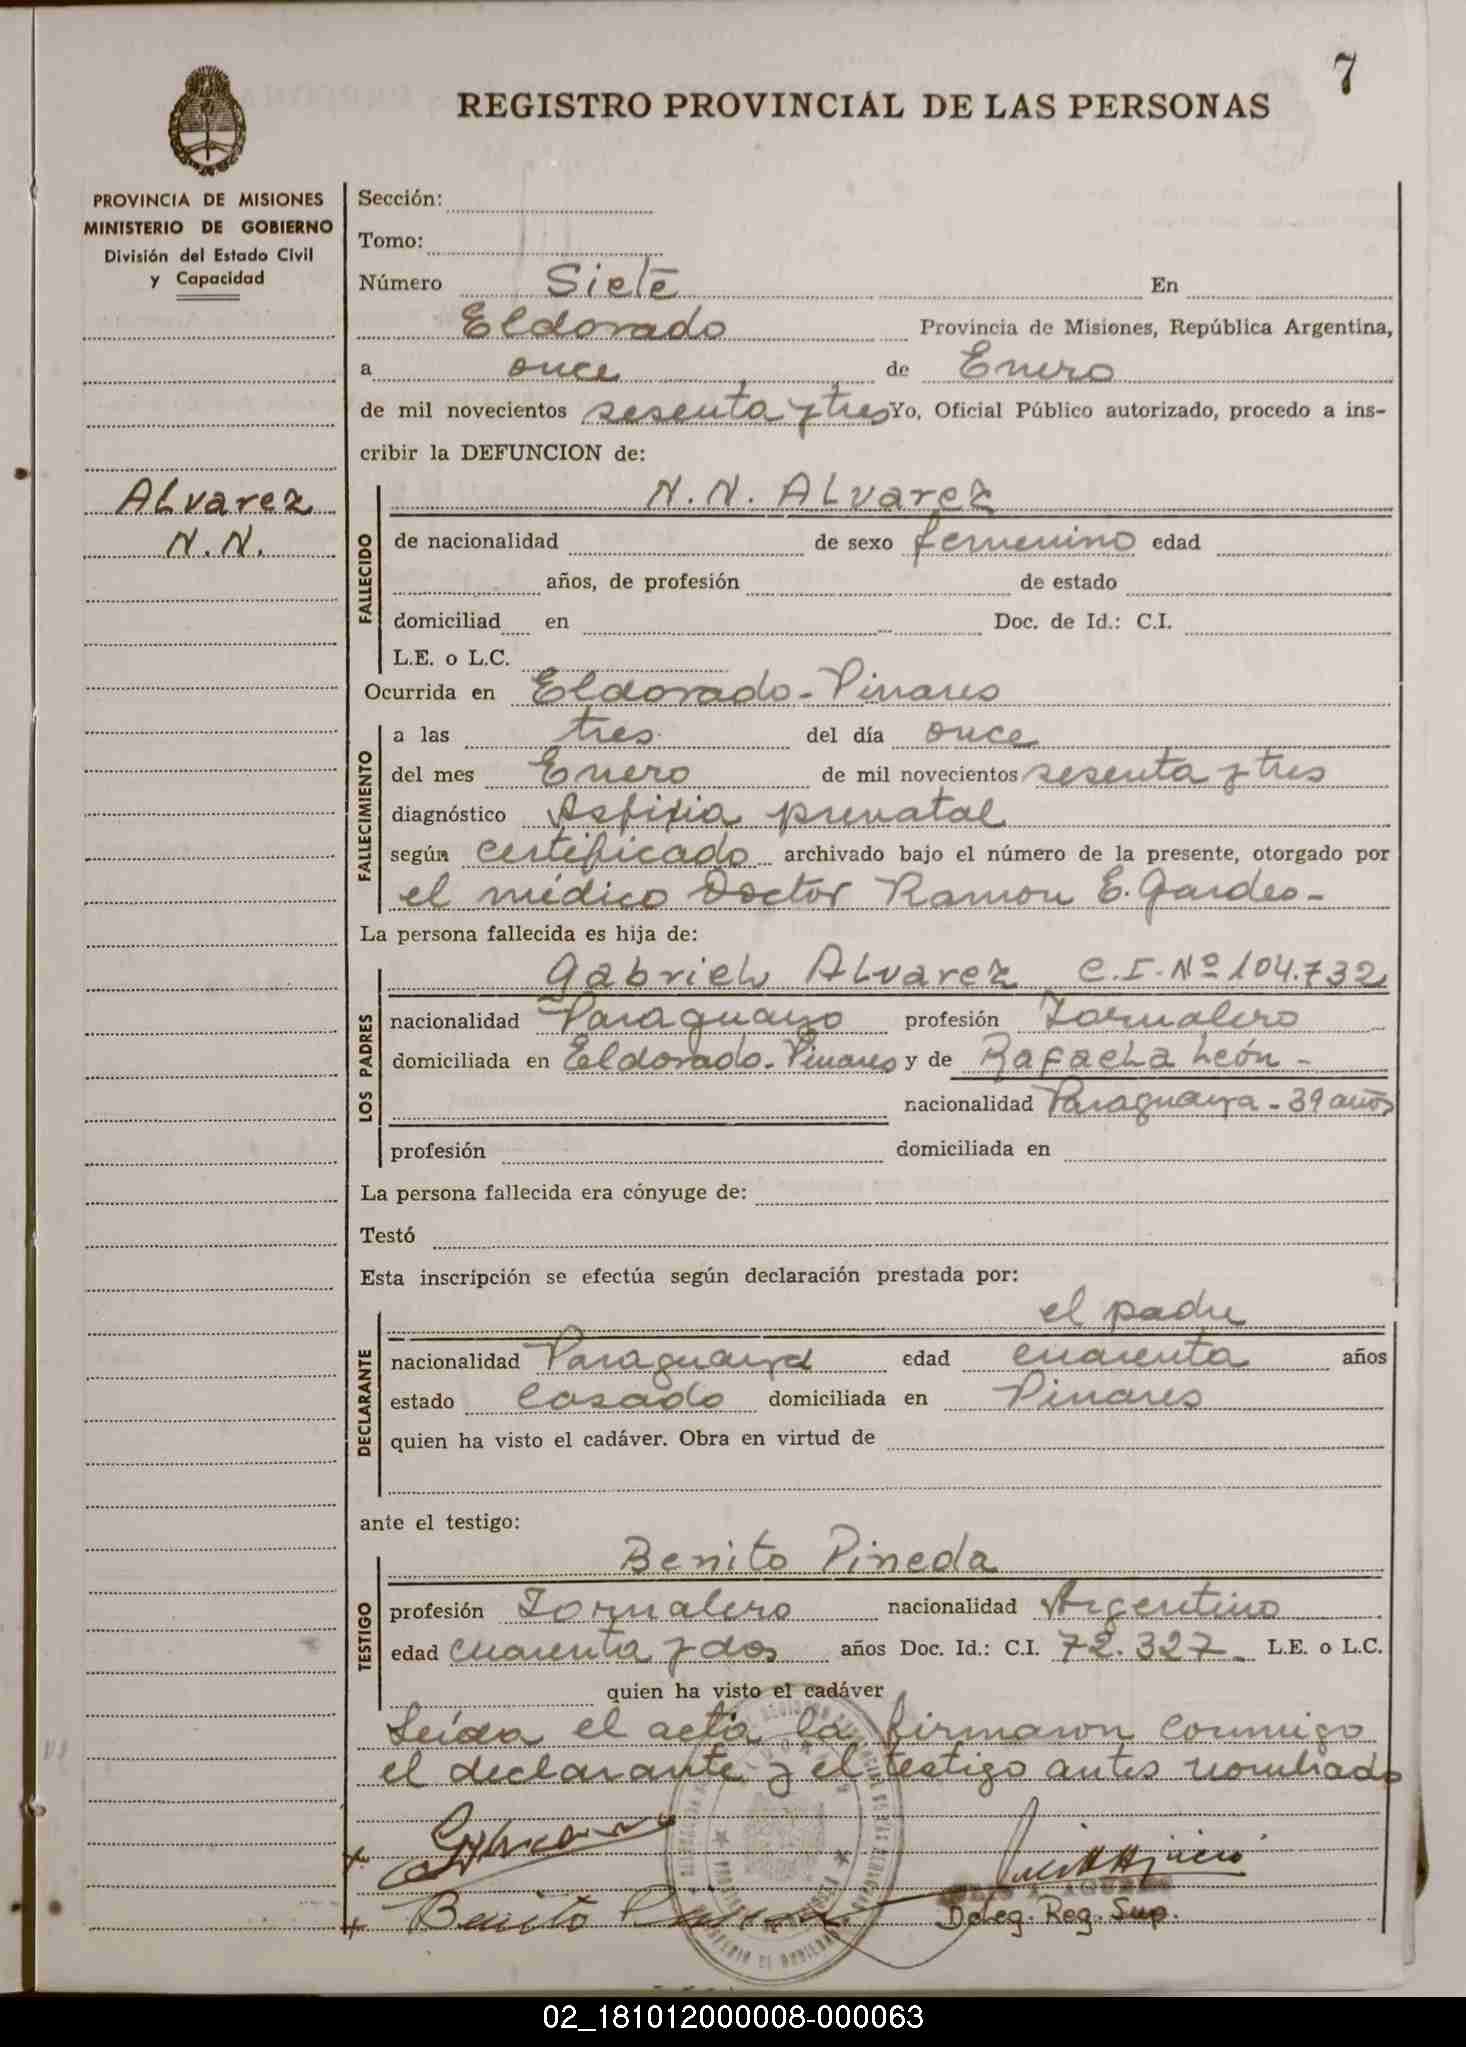 7
REGISTRO PROVINCIAL DE LAS PERSONAS
PROVINCIA DE MISIONES
MINISTERIO DE GOBIERNO
División del Estado Civil
y Capacidad
Alvarez
N.N.
Sección:
Tomo:
Número Siete En
Eldorado Provincia de Misiones, República Argentina,
a once de Enero
de mil novecientos sesenta y tres Yo, Oficial Público autorizado, procedo a ins-
cribir la DEFUNCION de:
N.N. Alvarez
FALLECIDO
de nacionalidad de sexo femenino edad
años, de profesión de estado
domiciliad en Doc. de Id.: C.I.
L.E. o L.C.
Ocurrida en Eldorado - Pinares
FALLECIMIENTO
a las tres del día once
del mes Enero de mil novecientos sesenta y tres
diagnóstico Asfixia prenatal
según certificado archivado bajo el número de la presente, otorgado por
el médico Doctor Ramon E. Gardes -
La persona fallecida es hija de:
LOS PADRES
Gabriel Alvarez C.I. Nº 104.732
nacionalidad Paraguayo profesión Jornalero
domiciliada en Eldorado - Pinares y de Rafaela León -
nacionalidad Paraguaya - 39 años
profesión domiciliada en
La persona fallecida era cónyuge de:
Testó
Esta inscripción se efectúa según declaración prestada por:
DECLARANTE
el padre
nacionalidad Paraguaya edad cuarenta años
estado casado domiciliada en Pinares
quien ha visto el cadáver. Obra en virtud de
ante el testigo:
TESTIGO
Benito Pineda
profesión Jornalero nacionalidad Argentino
edad cuarenta y dos años Doc. Id.: C.I. 72.327 - L.E. o L.C.
quien ha visto el cadáver
Leída el acta la firmaron conmigo
el declarante y el testigo antes nombrado
Benito Pineda
Deleg. Reg. Sup.
02_181012000008-000063